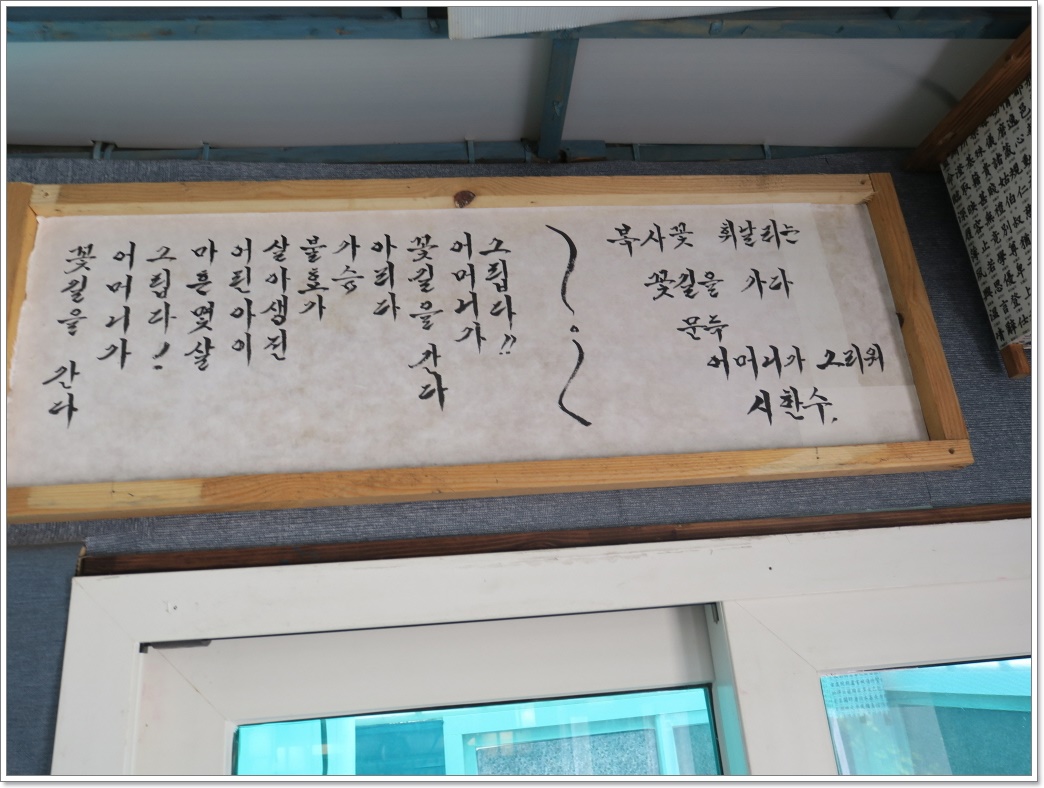 꽃길을 간다
어머니가
그립다!
마흔몇살
어린아이
살아생전
불효가
가슴
아리다
꽃길을 간다
어머니가
그립다!!
복사꽃 휘날리는
꽃길을 가다
문득
어머니가 그리워
시 한수.